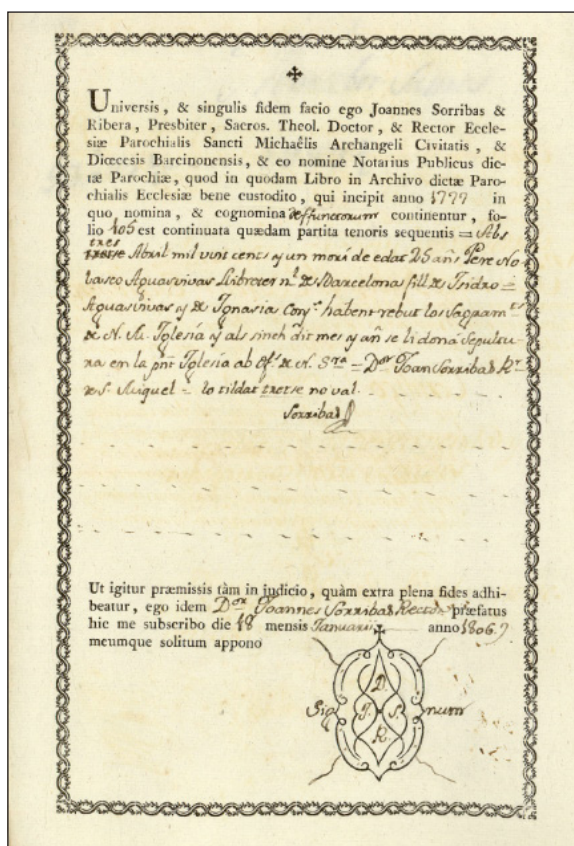 Universis, & singulis fidem facio ego Joannes Sorribas &
Ribera, Presbiter, Sacros. Theol. Doctor, & Rector Eccle-
siæ Parochialis Sancti Michaêlis Archangeli Civitatis, &
Diœcesis Barcinonensis, & eo nomine Notarius Publicus dic-
tæ Parochiæ, quod in quodam Libro in Archivo dictæ Paro-
chialis Ecclesiæ bene custodito, qui incipit anno 1777 in
quo nomina, & cognomina deffunctorum continentur, fo-
lio 105 est continuata quædam partita tenoris sequentis = Als
tres
tretse Abril mil vuit cents y un morí de edat 25 añs Pere No-
lasco Aguasvivas Llibreter nl. de Barcelona fill de Isidro =
Aguasvivas y de Ignasia Cony.s habent rebut los Sagram.ts
de N. M. Iglesía y als sinch dit mes y añ se li doná Sepultu-
ra en la pnt Iglesía ab of.i de N. Sra = Dor Joan Sorribas Rr
de S. Miquel = lo tildat tretse no val.
Sorribas
Ut igitur præmissis tàm in judicio, quàm extra plena fides adhi-
beatur, ego idem Dor Joannes Sorribas Rector præfatus
hic me subscribo die 18 mensis Januarii anno 1806.
meumque solitum appono
D.
Sig J. S. num
R.